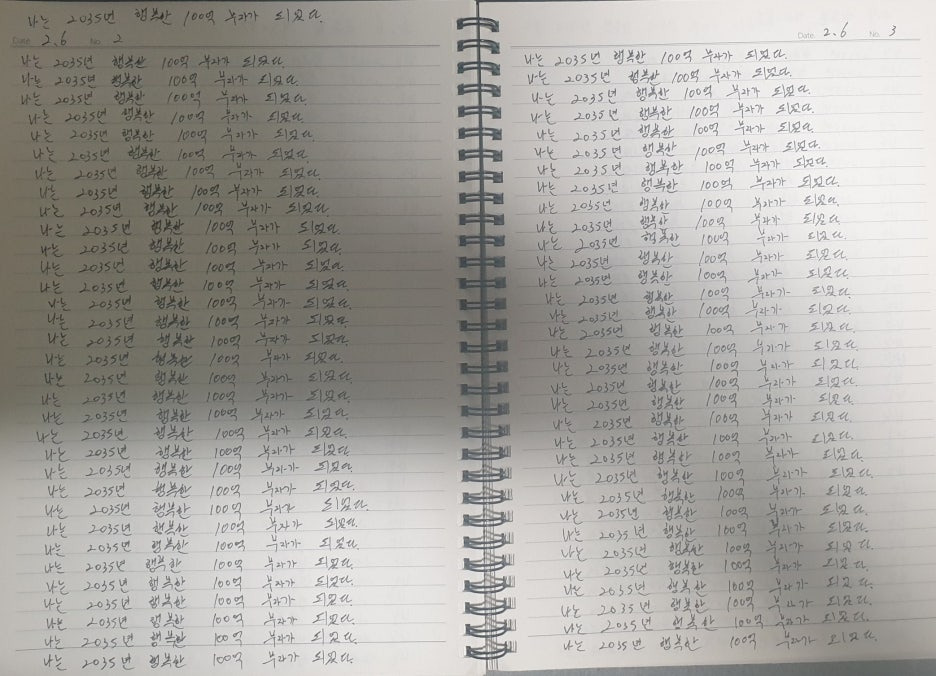 나는 2035년 행복한 100억 부자가 되었다.
Date 2.6 No. 2
나는 2035년 행복한 100억 부자가 되었다.
나는 2035년 행복한 100억 부자가 되었다.
나는 2035년 행복한 100억 부자가 되었다.
나는 2035년 행복한 100억 부자가 되었다.
나는 2035년 행복한 100억 부자가 되었다.
나는 2035년 행복한 100억 부자가 되었다.
나는 2035년 행복한 100억 부자가 되었다.
나는 2035년 행복한 100억 부자가 되었다.
나는 2035년 행복한 100억 부자가 되었다.
나는 2035년 행복한 100억 부자가 되었다.
나는 2035년 행복한 100억 부자가 되었다.
나는 2035년 행복한 100억 부자가 되었다.
나는 2035년 행복한 100억 부자가 되었다.
나는 2035년 행복한 100억 부자가 되었다.
나는 2035년 행복한 100억 부자가 되었다.
나는 2035년 행복한 100억 부자가 되었다.
나는 2035년 행복한 100억 부자가 되었다.
나는 2035년 행복한 100억 부자가 되었다.
나는 2035년 행복한 100억 부자가 되었다.
나는 2035년 행복한 100억 부자가 되었다.
나는 2035년 행복한 100억 부자가 되었다.
나는 2035년 행복한 100억 부자가 되었다.
나는 2035년 행복한 100억 부자가 되었다.
나는 2035년 행복한 100억 부자가 되었다.
나는 2035년 행복한 100억 부자가 되었다.
나는 2035년 행복한 100억 부자가 되었다.
나는 2035년 행복한 100억 부자가 되었다.
나는 2035년 행복한 100억 부자가 되었다.
나는 2035년 행복한 100억 부자가 되었다.
나는 2035년 행복한 100억 부자가 되었다.
나는 2035년 행복한 100억 부자가 되었다.
나는 2035년 행복한 100억 부자가 되었다.
나는 2035년 행복한 100억 부자가 되었다.
Date. 2.6 No. 3
나는 2035년 행복한 100억 부자가 되었다.
나는 2035년 행복한 100억 부자가 되었다.
나는 2035년 행복한 100억 부자가 되었다.
나는 2035년 행복한 100억 부자가 되었다.
나는 2035년 행복한 100억 부자가 되었다.
나는 2035년 행복한 100억 부자가 되었다.
나는 2035년 행복한 100억 부자가 되었다.
나는 2035년 행복한 100억 부자가 되었다.
나는 2035년 행복한 100억 부자가 되었다.
나는 2035년 행복한 100억 부자가 되었다.
나는 2035년 행복한 100억 부자가 되었다.
나는 2035년 행복한 100억 부자가 되었다.
나는 2035년 행복한 100억 부자가 되었다.
나는 2035년 행복한 100억 부자가 되었다.
나는 2035년 행복한 100억 부자가 되었다.
나는 2035년 행복한 100억 부자가 되었다.
나는 2035년 행복한 100억 부자가 되었다.
나는 2035년 행복한 100억 부자가 되었다.
나는 2035년 행복한 100억 부자가 되었다.
나는 2035년 행복한 100억 부자가 되었다.
나는 2035년 행복한 100억 부자가 되었다.
나는 2035년 행복한 100억 부자가 되었다.
나는 2035년 행복한 100억 부자가 되었다.
나는 2035년 행복한 100억 부자가 되었다.
나는 2035년 행복한 100억 부자가 되었다.
나는 2035년 행복한 100억 부자가 되었다.
나는 2035년 행복한 100억 부자가 되었다.
나는 2035년 행복한 100억 부자가 되었다.
나는 2035년 행복한 100억 부자가 되었다.
나는 2035년 행복한 100억 부자가 되었다.
나는 2035년 행복한 100억 부자가 되었다.
나는 2035년 행복한 100억 부자가 되었다.
나는 2035년 행복한 100억 부자가 되었다.